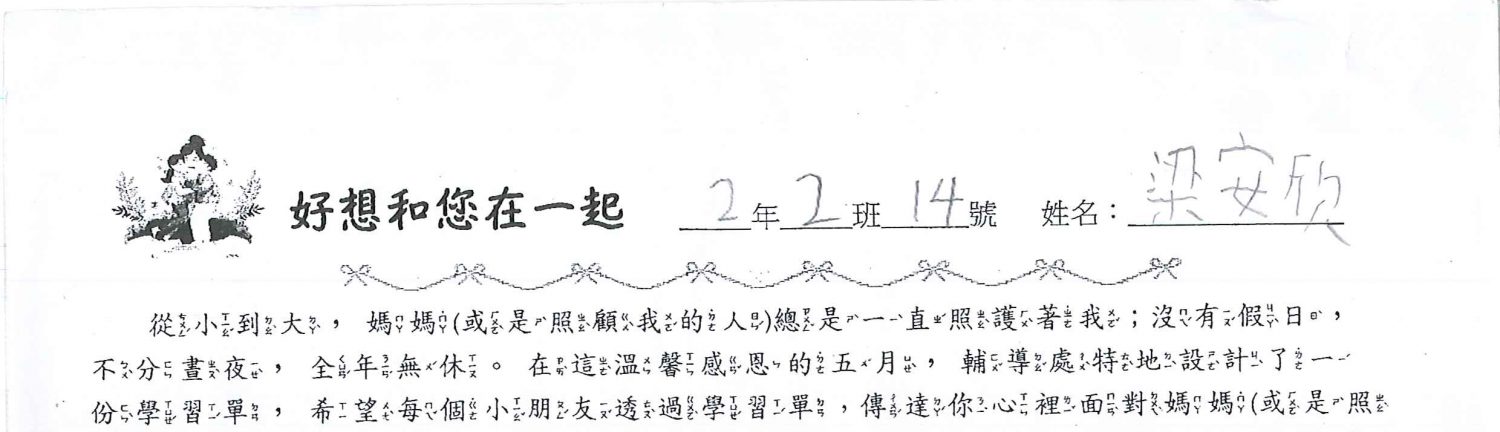 好想和您在一起 2年2班14號 姓名：梁安欣
從小到大，媽媽(或是照顧我的人)總是一直照護著我；沒有假日，
不分晝夜，全年無休。在這溫馨感恩的五月，輔導處特地設計了一
份學習單，希望每個小朋友透過學習單，傳達你心裡面對媽媽(或是照